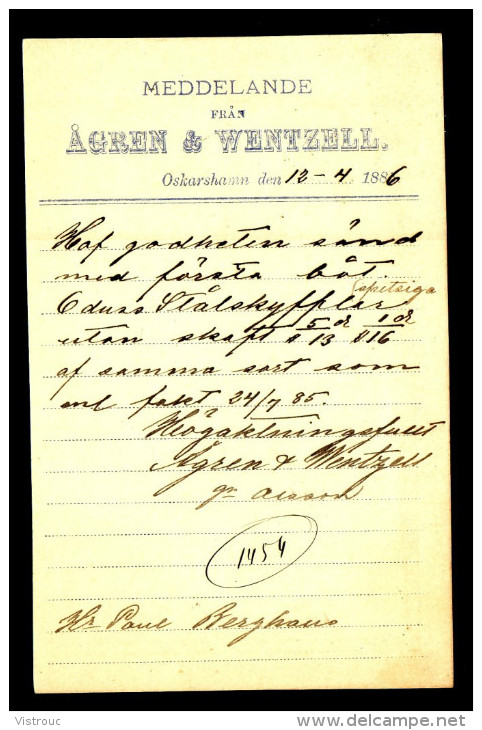 MEDDELANDE
FRÅN
ÅGREN & WENTZELL.
Oskarshamn den 12-4 1886
Haf godheten sänd
med första båt.
6 duss Stålskyfflar spetsiga
utan skaft # 5/13 dz # 1/16 dz
af samma sort som
enl fakt 24/7 85.
Högaktningsfullt
Ågren & Wentzell
1454
Hr Paul Berghaus
Vistrouc
delcampe.net